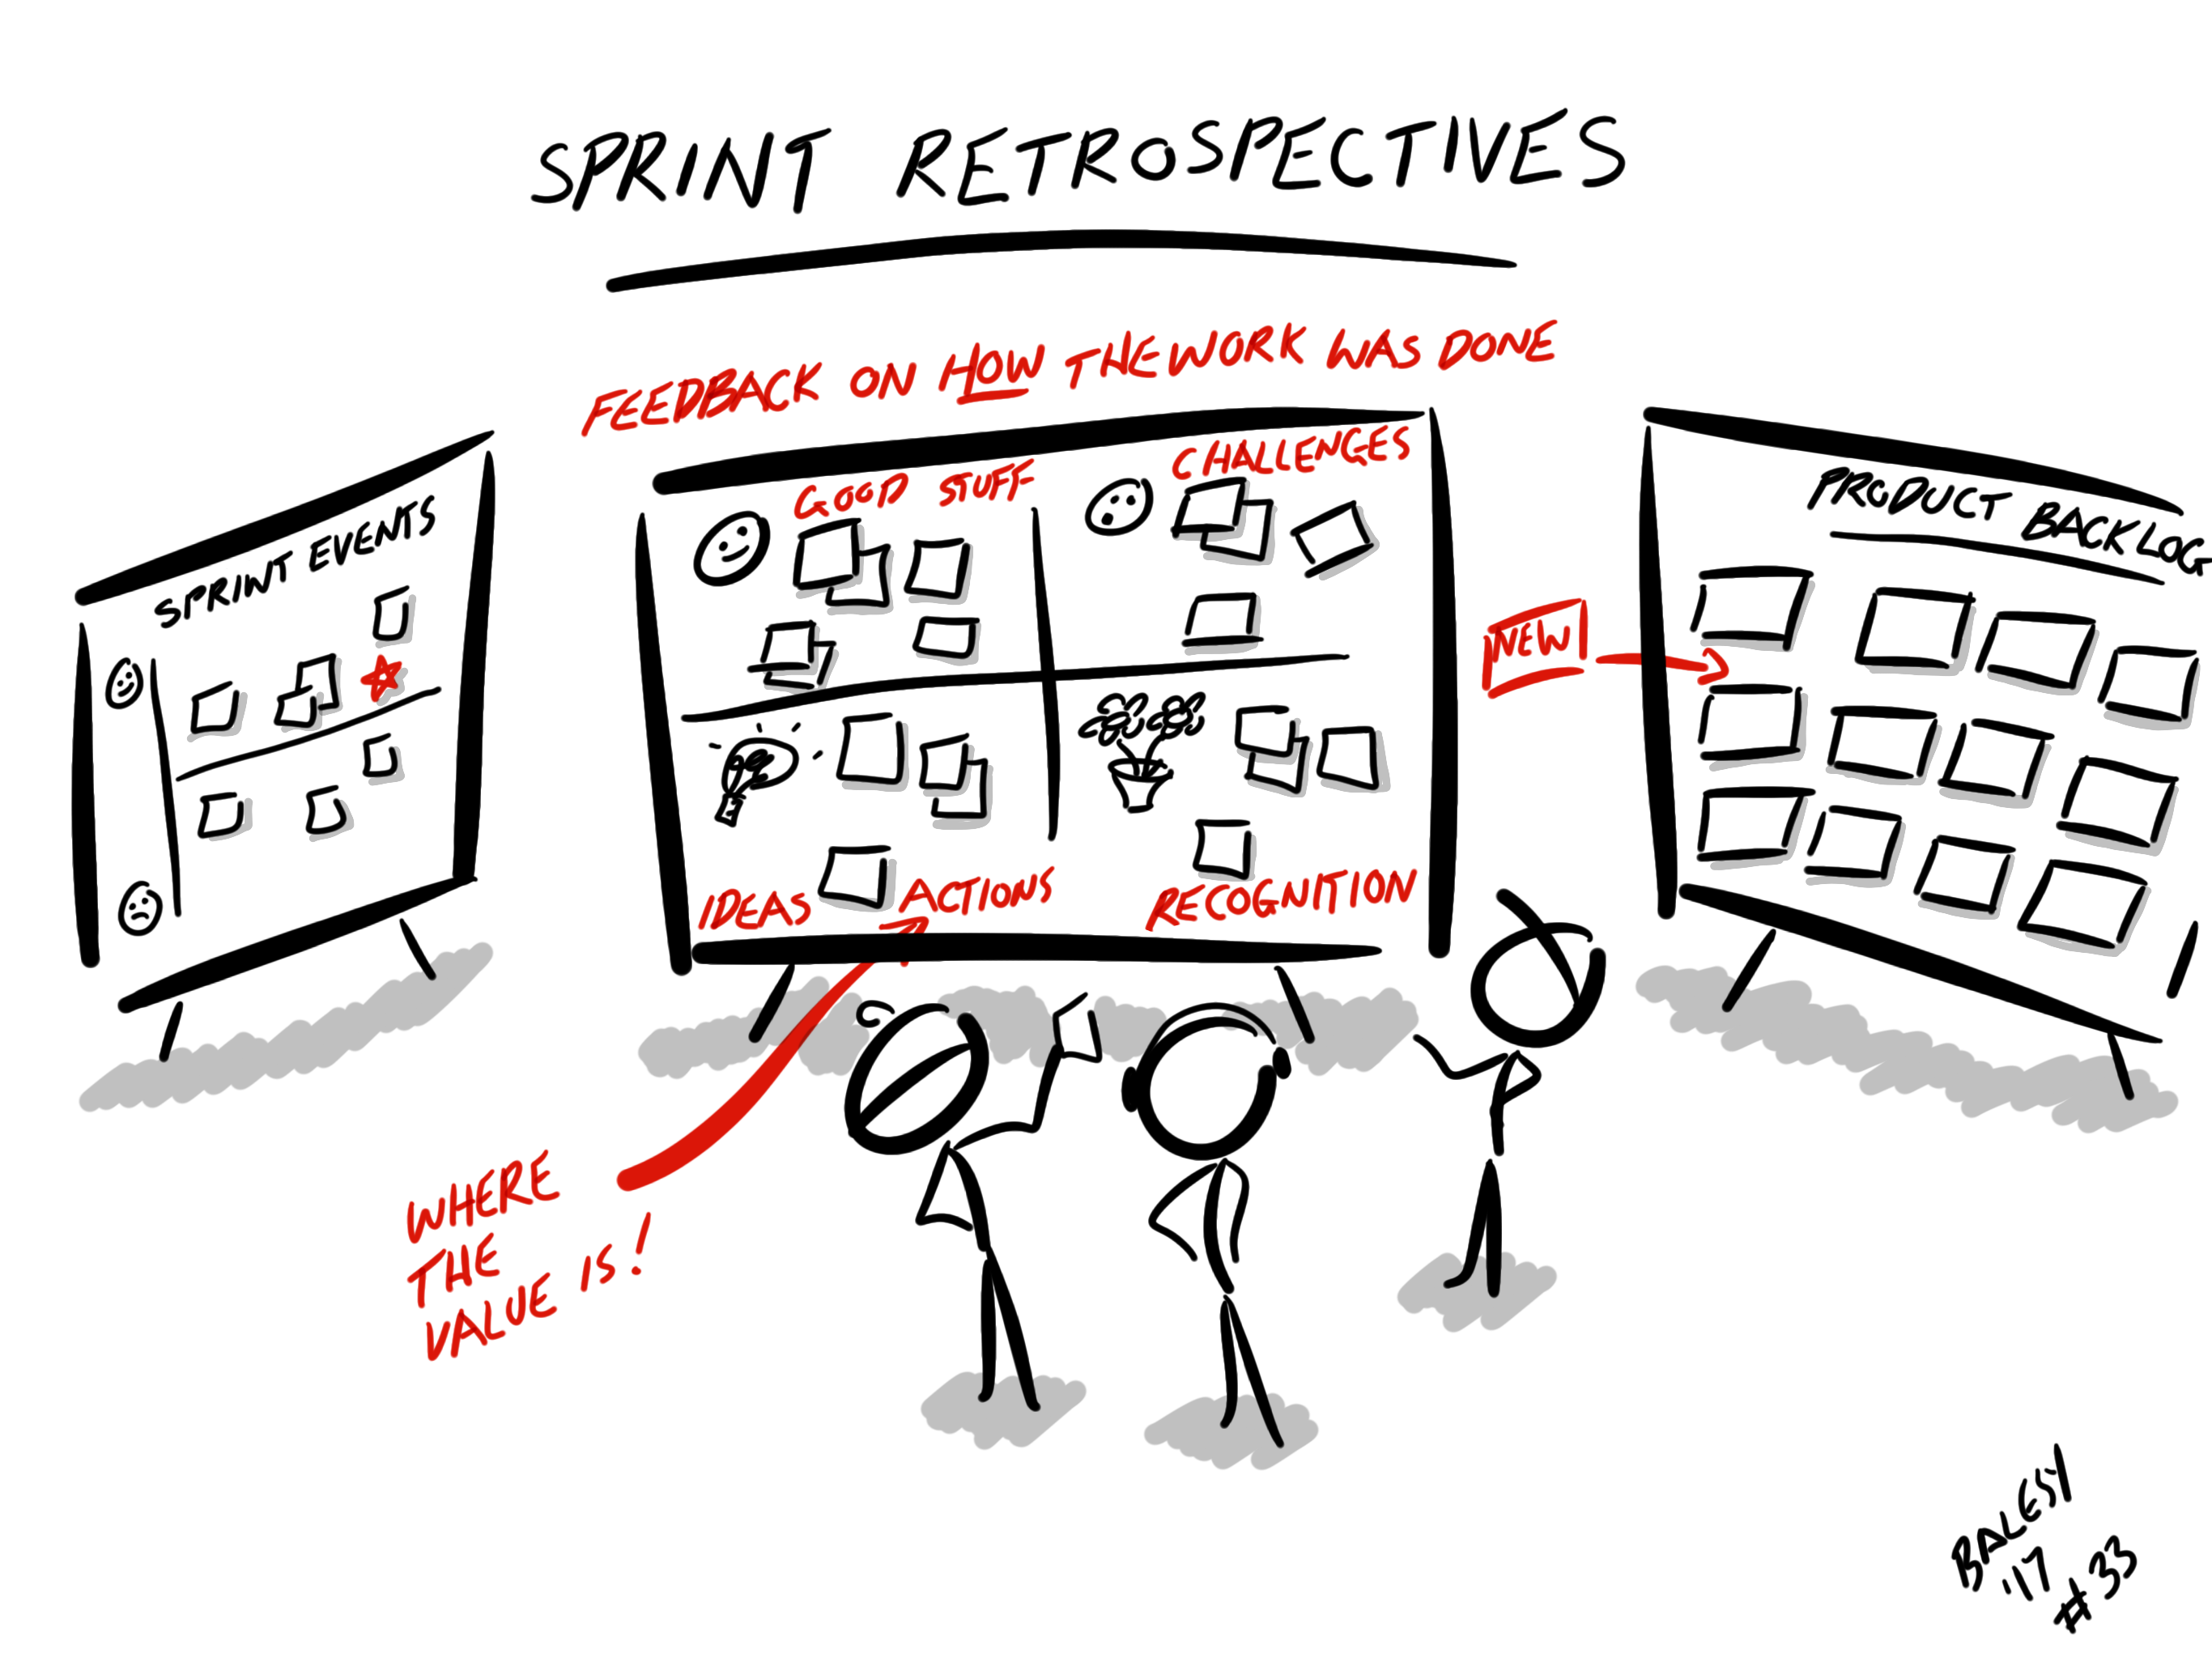 SPRINT RETROSPECTIVES
FEEDBACK ON HOW THE WORK WAS DONE
SPRINT EVENTS
GOOD STUFF
CHALLENGES
IDEAS
ACTIONS
RECOGNITION
NEW
PRODUCT BACKLOG
WHERE
THE
VALUE IS!
BALESY
'17
#33